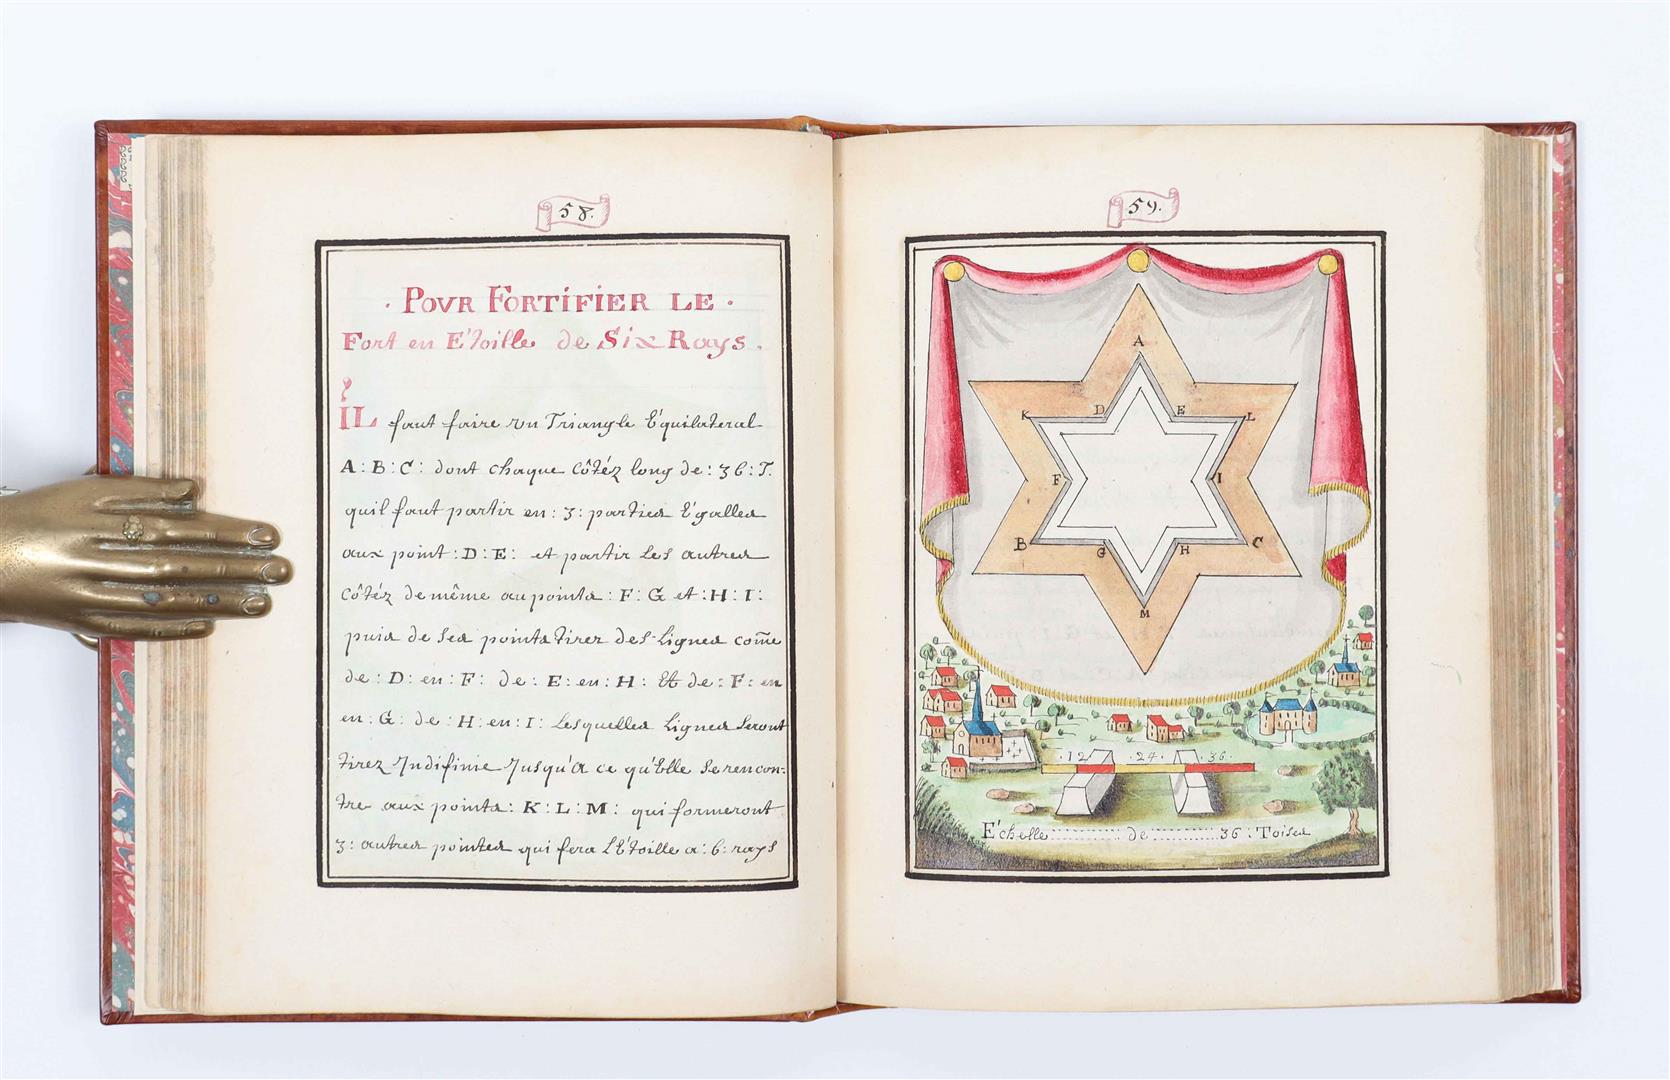 58.
· POVR FORTIFIER LE ·
Fort en E'toille de Six Rays.
IL faut faire un Triangle E'quilateral
A : B : C : dont chaque côtéz long de : 36 : T.
quil faut partir en : 3 : parties E'galles
aux point : D : E : et partir les autres
côtéz de même au points : F : G et : H : I :
puis de ses points tirez des Lignes com̃e
de : D : en : F : de : E : en : H : Et de : F : en
en : G : de : H : en : I : Lesquelles Lignes Seront
tirez Indifinie Jusqu'A ce qu'Elle se rencon-
tre aux points : K : L : M : qui formeront
3 : autres pointes qui fera L'Etoille a : 6 : rays
59.
A
K D E L
F I
B G H C
M
· 12 · 24 · 36 ·
E'chelle de 36 : Toises